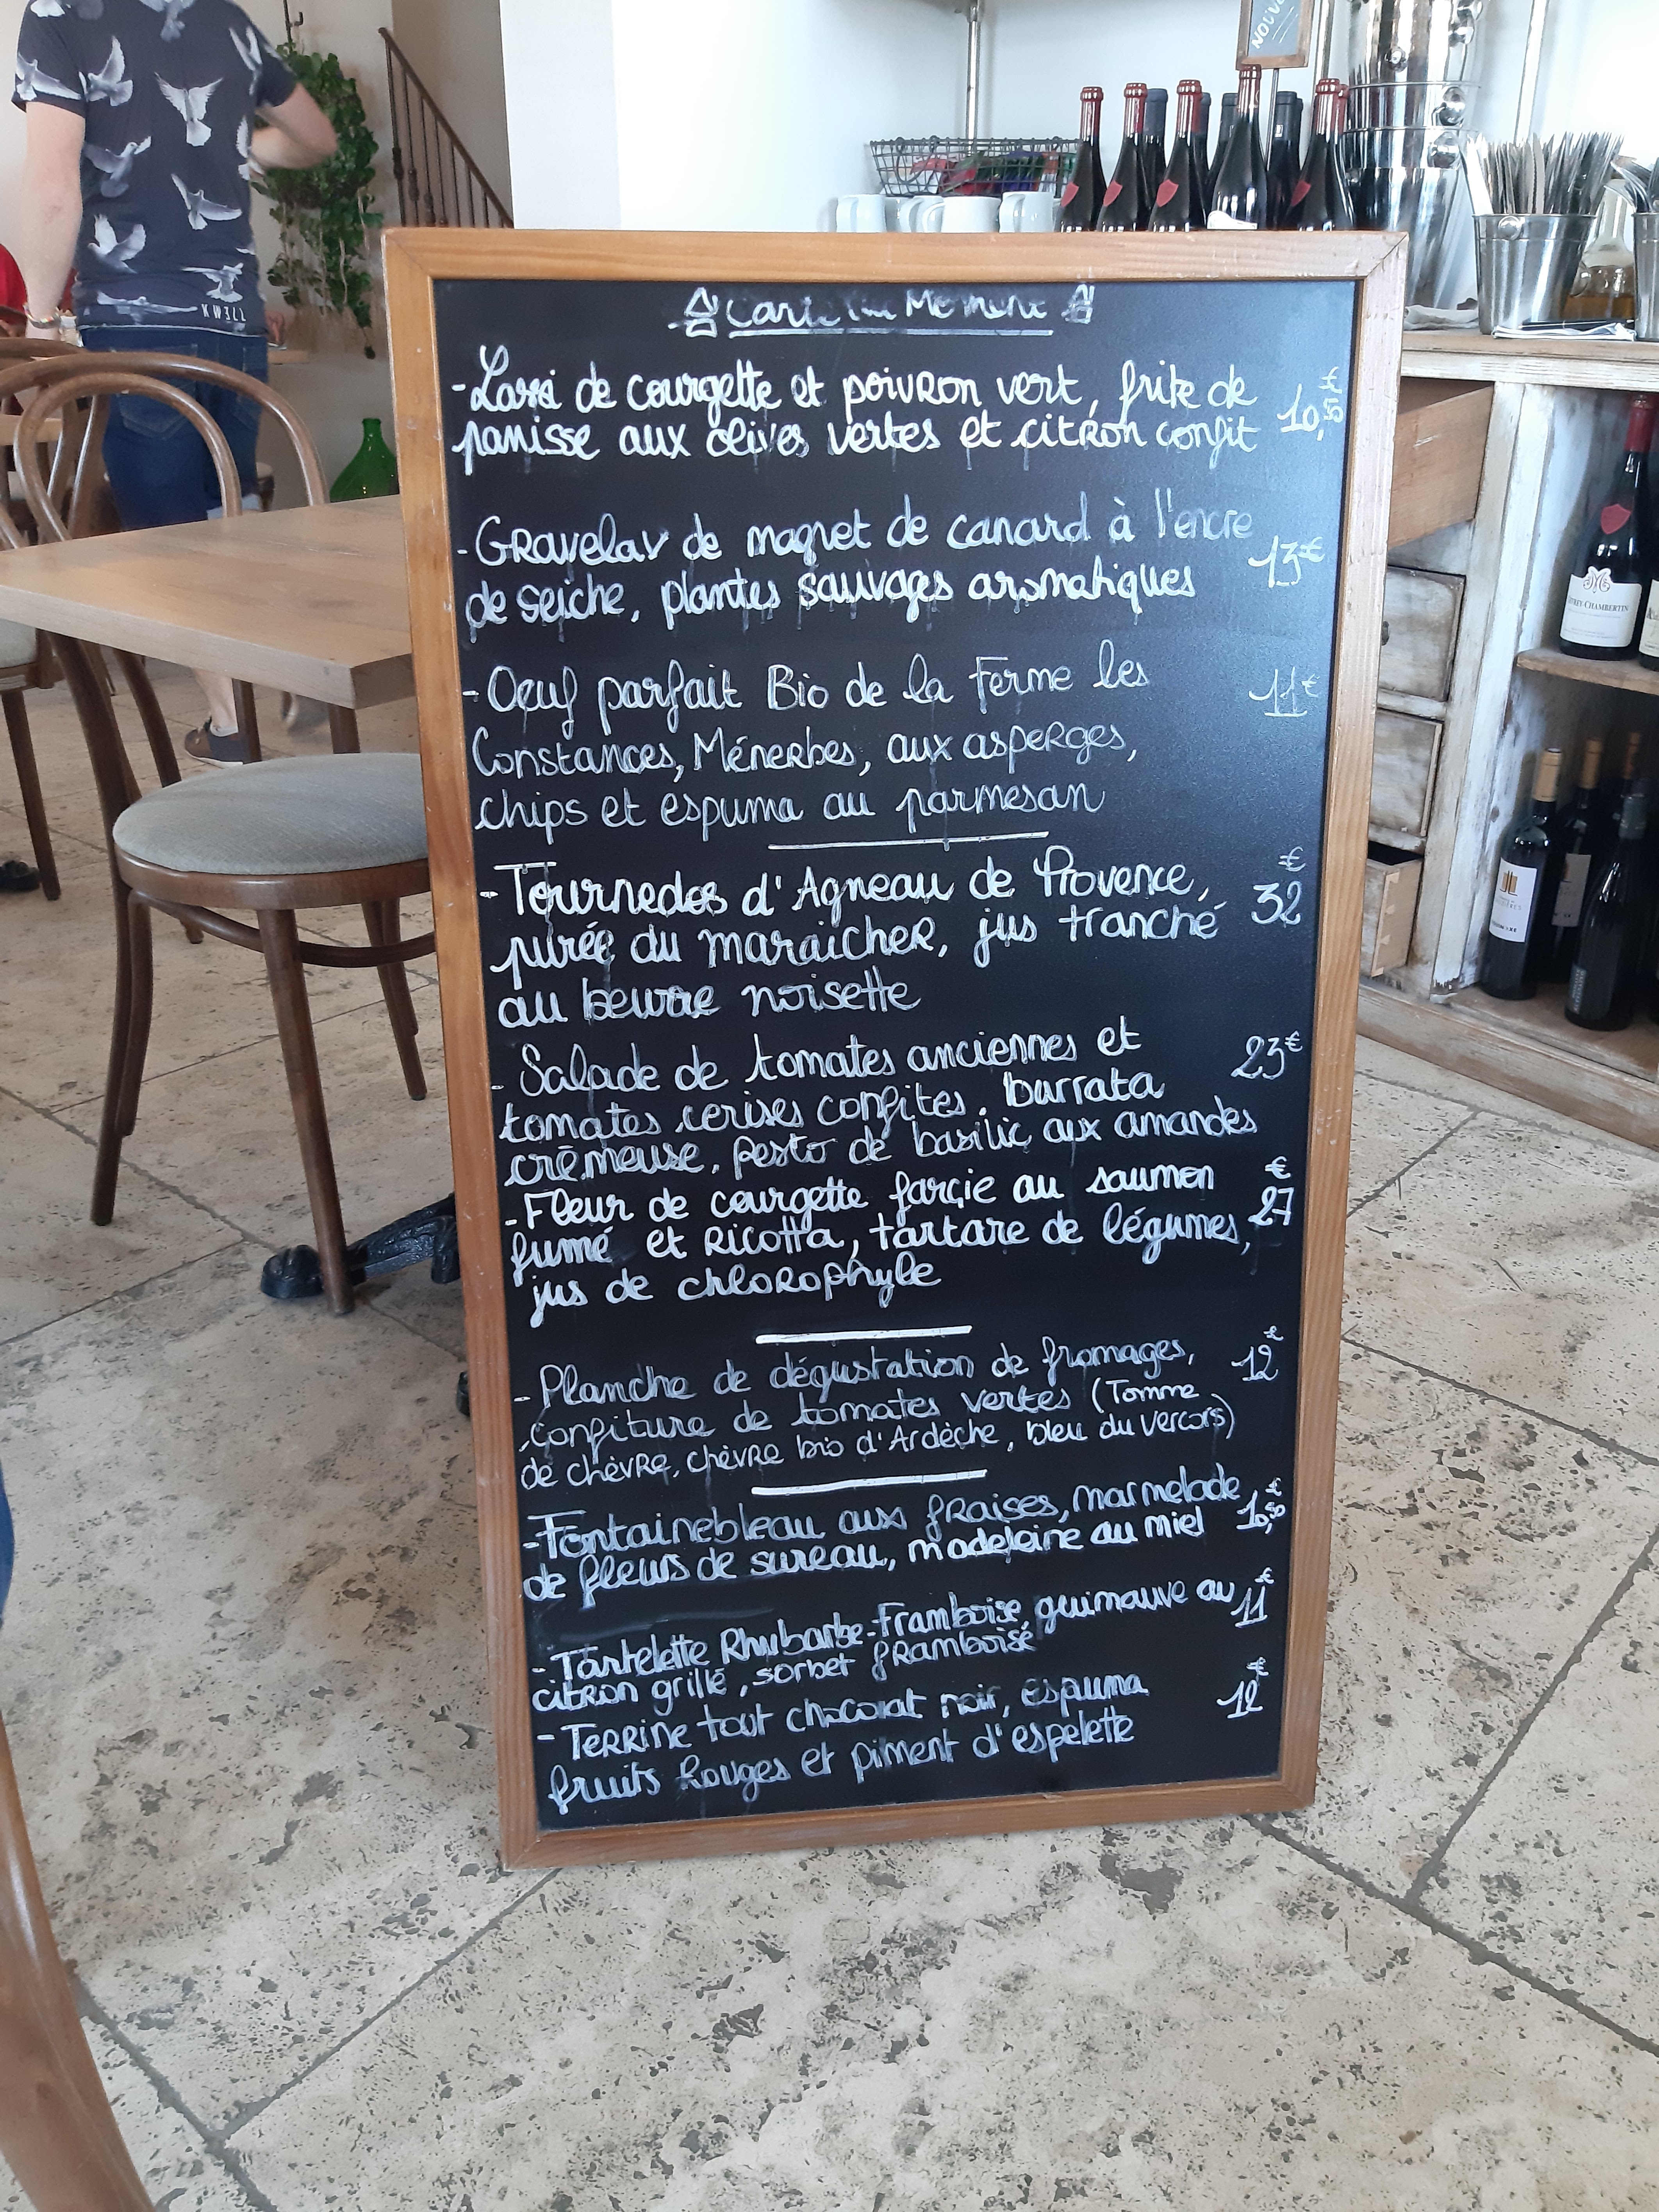 Carte du Moment
-Lassi de courgette et poivron vert, frite de
panisse aux olives vertes et citron confit 10,50€
-Gravelax de magret de canard à l'encre
de seiche, plantes sauvages aromatiques 13€
-Oeuf parfait Bio de la Ferme les 11€
Constances, Ménerbes, aux asperges,
chips et espuma au parmesan
-Tournedos d'Agneau de Provence, 32€
purée du maraîcher, jus tranché
au beurre noisette
-Salade de tomates anciennes et 23€
tomates cerises confites, burrata
crémeuse, pesto de basilic aux amandes
-Fleur de courgette farçie au saumon 27€
fumé et Ricotta, tartare de légumes,
jus de chlorophyle
-Planche de dégustation de fromages, 12€
confiture de tomates vertes (Tomme
de chèvre, chèvre bio d'Ardèche, bleu du Vercors)
-Fontainebleau aux fraises, marmelade 10,50€
de fleurs de sureau, madeleine au miel
-Tartelette Rhubarbe-Framboise, guimauve au 11€
citron grillé, sorbet framboise
-Terrine tout chocolat noir, espuma 12€
fruits rouges et piment d'espelette
GEVREY-CHAMBERTIN